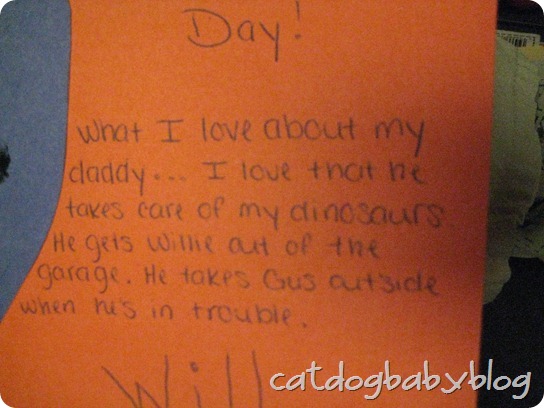 Day!
What I love about my
daddy... I love that he
takes care of my dinosaurs.
He gets Willie out of the
garage. He takes Gus outside
when he's in trouble.
Will
catdogbabyblog